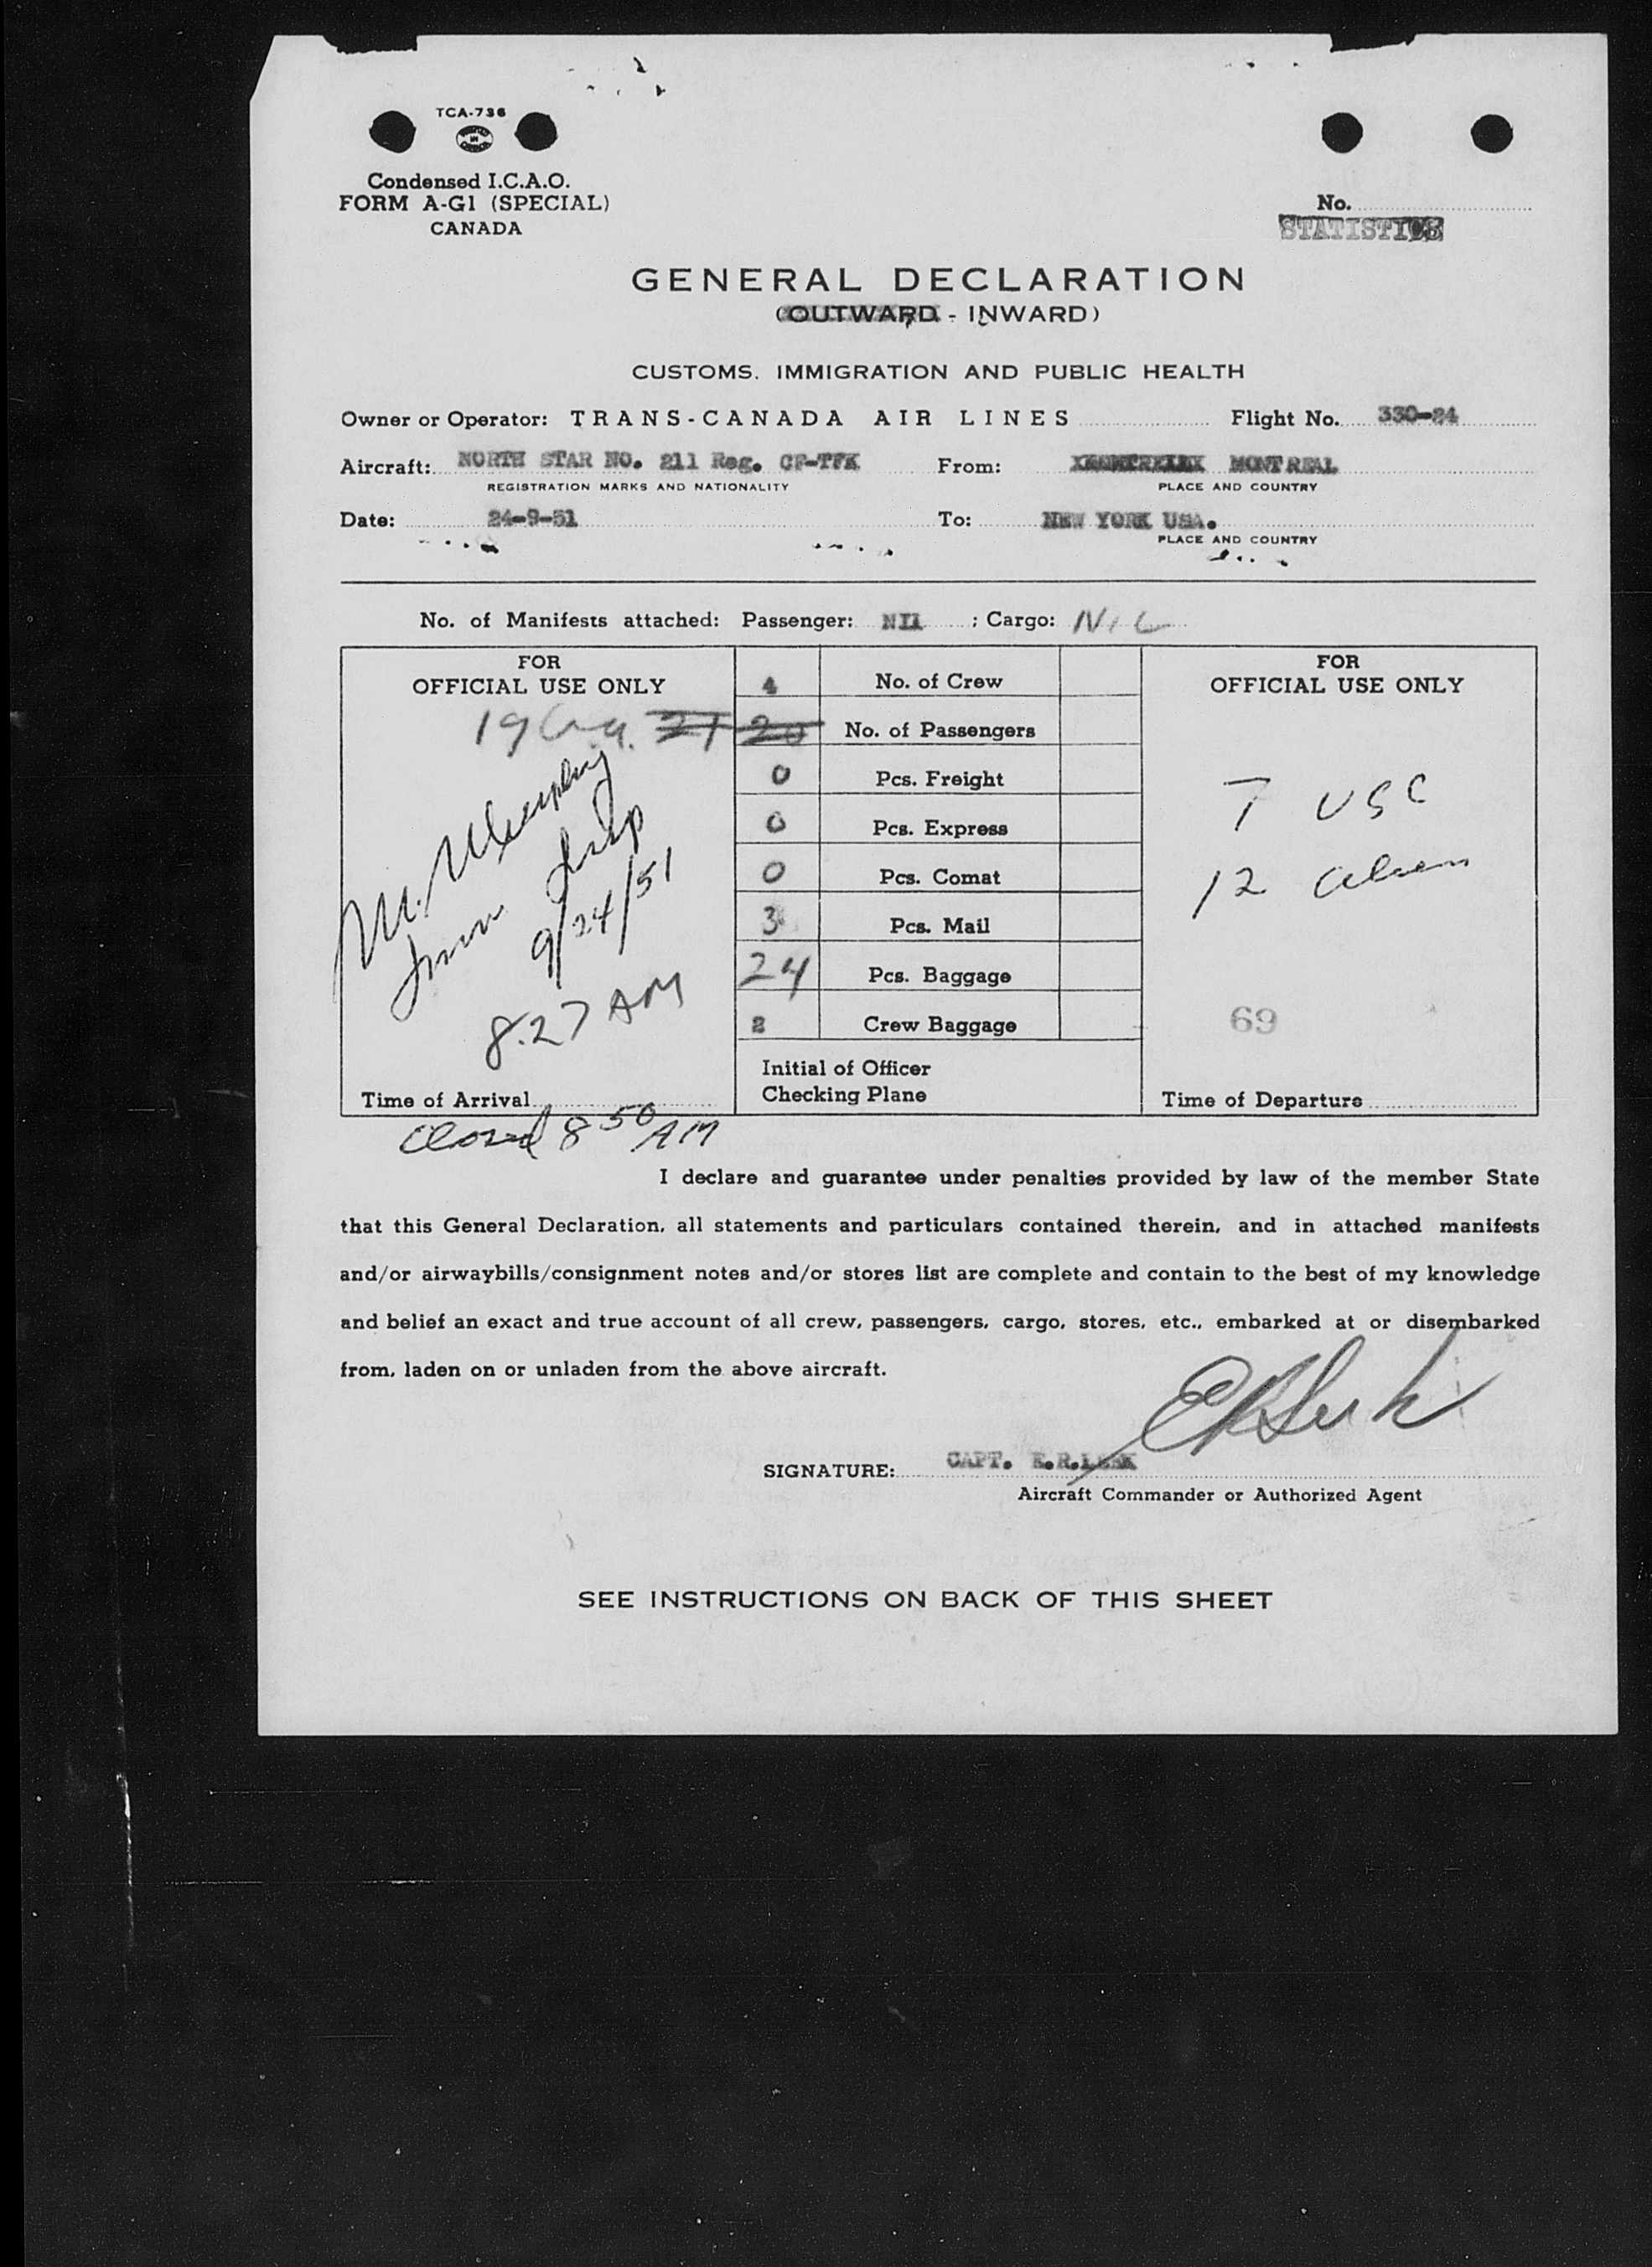 TCA-736
Condensed I.C.A.O.
FORM A-G1 (SPECIAL)
CANADA
No.
STATISTICS
GENERAL DECLARATION
(OUTWARD - INWARD)
CUSTOMS, IMMIGRATION AND PUBLIC HEALTH
Owner or Operator: TRANS-CANADA AIR LINES Flight No. 330-24
Aircraft: NORTH STAR NO. 211 Reg. CF-TFK From: MONTREAL
REGISTRATION MARKS AND NATIONALITY PLACE AND COUNTRY
Date: 24-9-51 To: NEW YORK USA.
PLACE AND COUNTRY
No. of Manifests attached: Passenger: NIL ; Cargo: NIL
FOR
OFFICIAL USE ONLY
19 21
M.
9/24/51
8.27 AM
Time of Arrival
Closed 8 50 AM
4 No. of Crew
20 No. of Passengers
0 Pcs. Freight
0 Pcs. Express
0 Pcs. Comat
3 Pcs. Mail
24 Pcs. Baggage
2 Crew Baggage
Initial of Officer
Checking Plane
FOR
OFFICIAL USE ONLY
7 USC
12 alien
69
Time of Departure
I declare and guarantee under penalties provided by law of the member State
that this General Declaration, all statements and particulars contained therein, and in attached manifests
and/or airwaybills/consignment notes and/or stores list are complete and contain to the best of my knowledge
and belief an exact and true account of all crew, passengers, cargo, stores, etc., embarked at or disembarked
from, laden on or unladen from the above aircraft.
SIGNATURE: CAPT. E.R.LEEK
Aircraft Commander or Authorized Agent
SEE INSTRUCTIONS ON BACK OF THIS SHEET